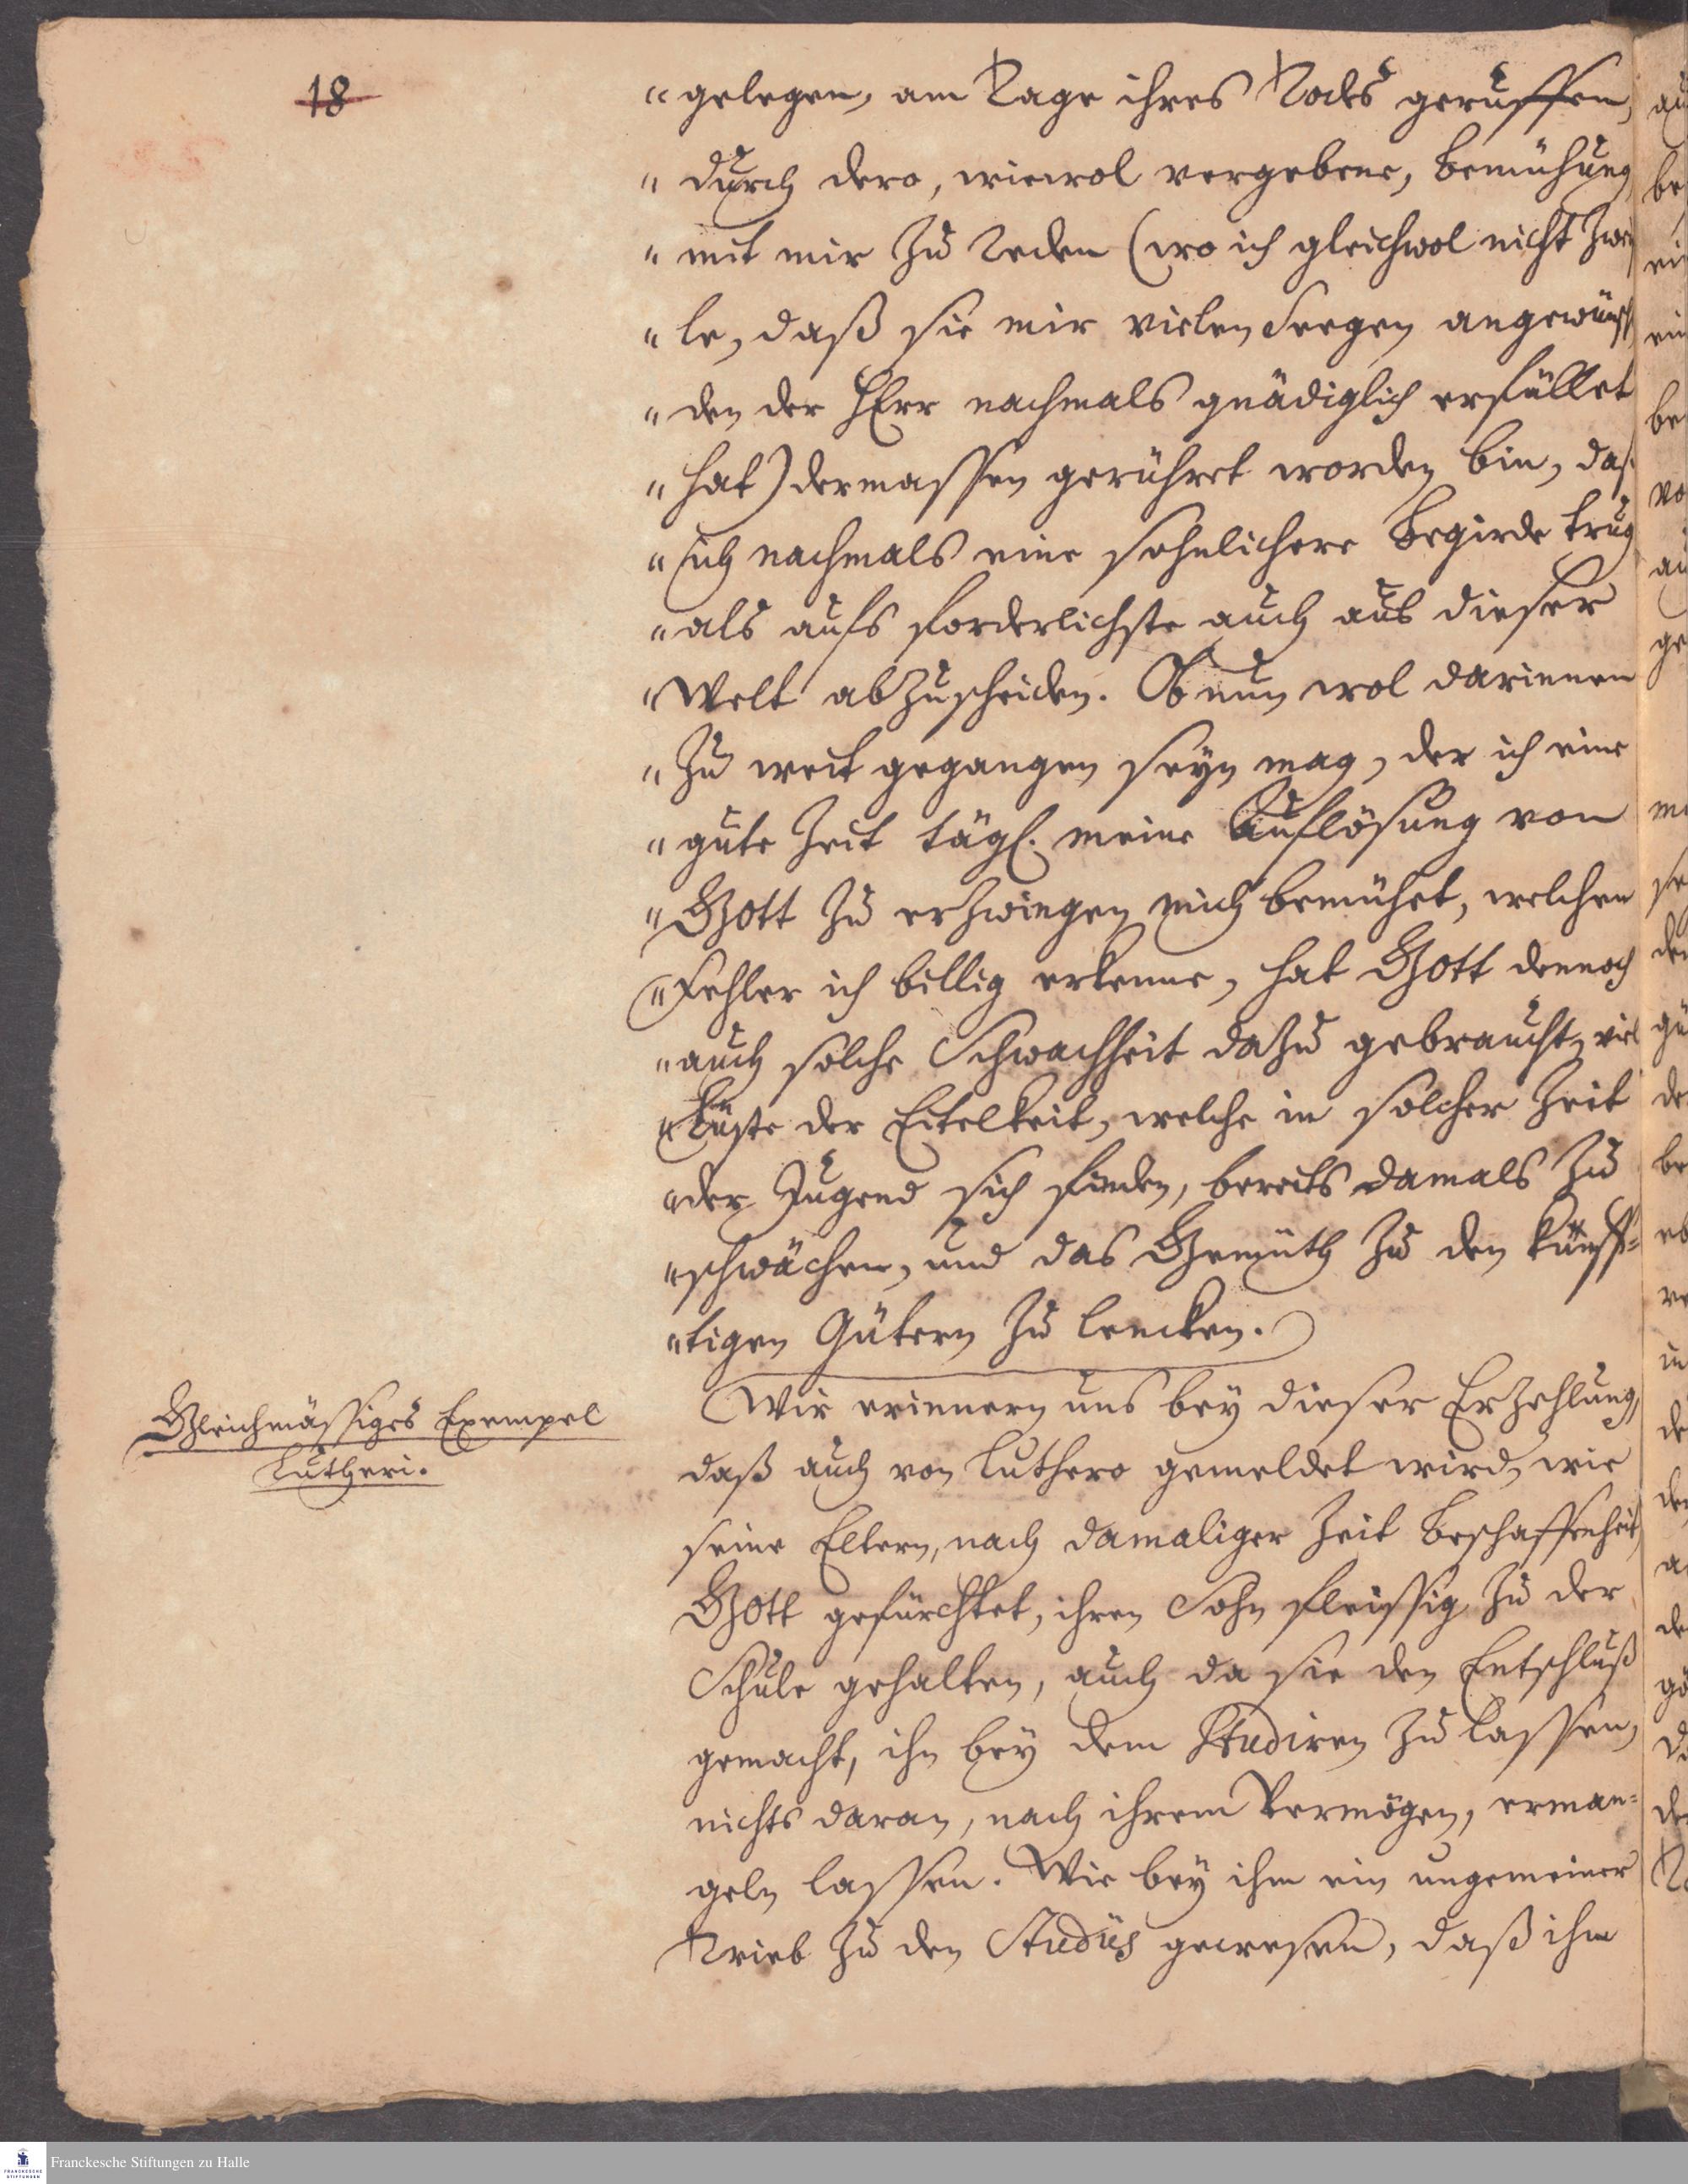 18
"gelegen, am Tage ihres Todes geruffen,
"durch dero, wiewol vergebene, Bemühung
"mit mir zu reden (wo ich gleichwol nicht zwei
"le, daß sie mir vielen Seegen angewünsch
"den der HErr nachmals gnädiglich erfüllet
"hat) dermassen gerühret worden bin, daß
"ich nachmals eine sehnlichere Begirde trug
"als aufs forderlichste auch aus dieser
"Welt abzuscheiden. Ob nun wol darinnen
"zu weit gegangen seyn mag, der ich eine
"gute Zeit tägl. meine Auflösung von
"Gott zu erzwingen mich bemühet, welchen
"Fehler ich billig erkenne, hat Gott dennoch
"auch solche Schwachheit dazu gebraucht, viel
"Lüste der Eitelkeit, welche in solcher Zeit
"der Jugend sich finden, bereits damals zu
"schwächen, und das Gemüth zu den künff-
"tigen Gütern zu lencken.
Gleichmässiges Exempel
Lutheri.
Wir erinnern uns bey dieser Erzehlung,
daß auch von Luthero gemeldet wird, wie
seine Eltern, nach damaliger Zeit Beschaffenheit,
Gott gefürchtet, ihren Sohn fleissig zu der
Schule gehalten, auch da sie den Entschluß
gemacht, ihn bey dem Studiren zu lassen,
nichts daran, nach ihrem Vermögen, erman-
geln lassen. Wie bey ihm ein ungemeiner
Trieb zu den Studiis gewesen, daß ihm
Franckesche Stiftungen zu Halle